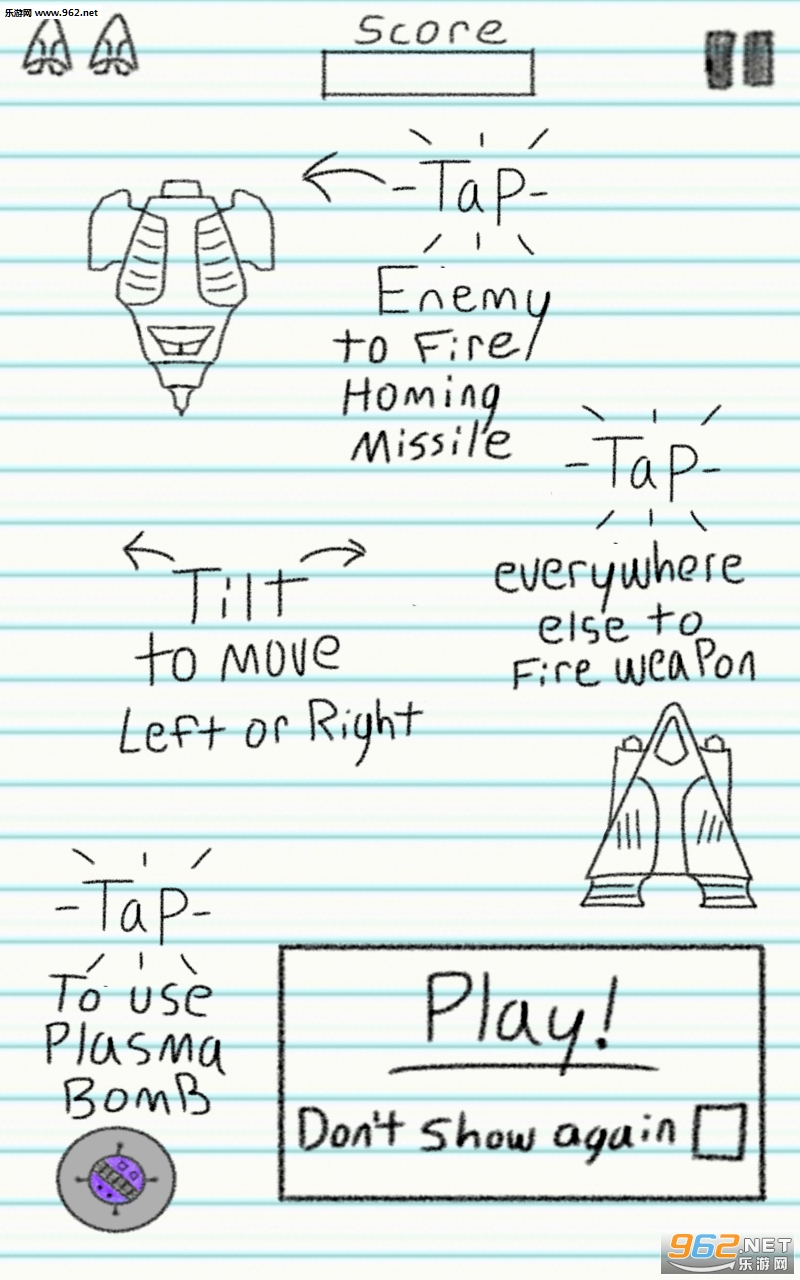 乐游网 www.962.net
Score
-Tap-
Enemy
to Fire
Homing
Missile
-Tap-
everywhere
else to
Fire weapon
Tilt
to move
Left or Right
-Tap-
To use
Plasma
Bomb
Play!
Don't show again
962.NET
乐游网